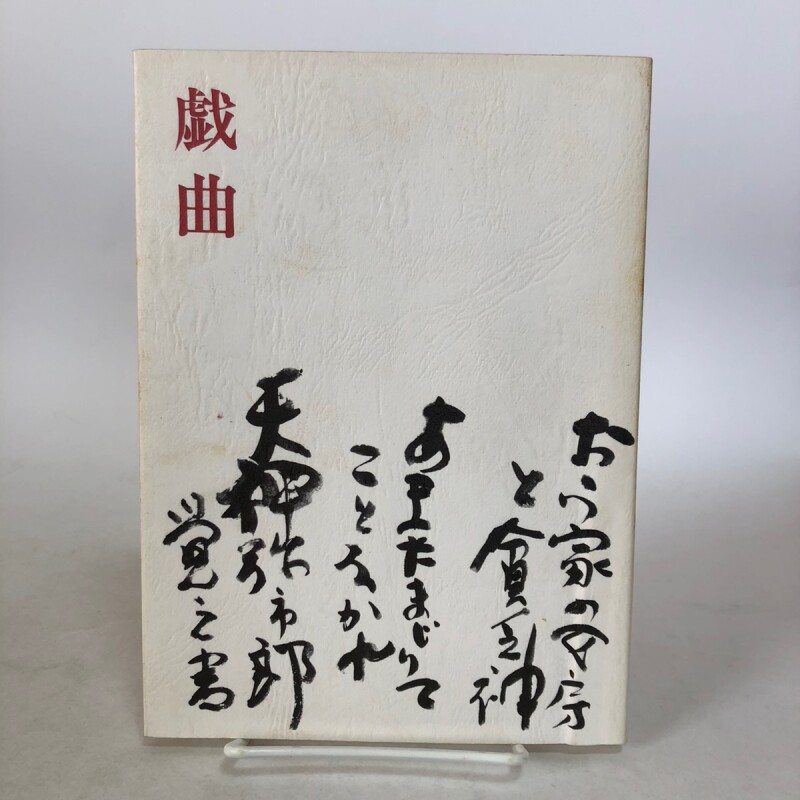 戯曲
おら家の女房
と貧乏神
あまたまじりて
ことなかれ
天神弥市郎
覚え書